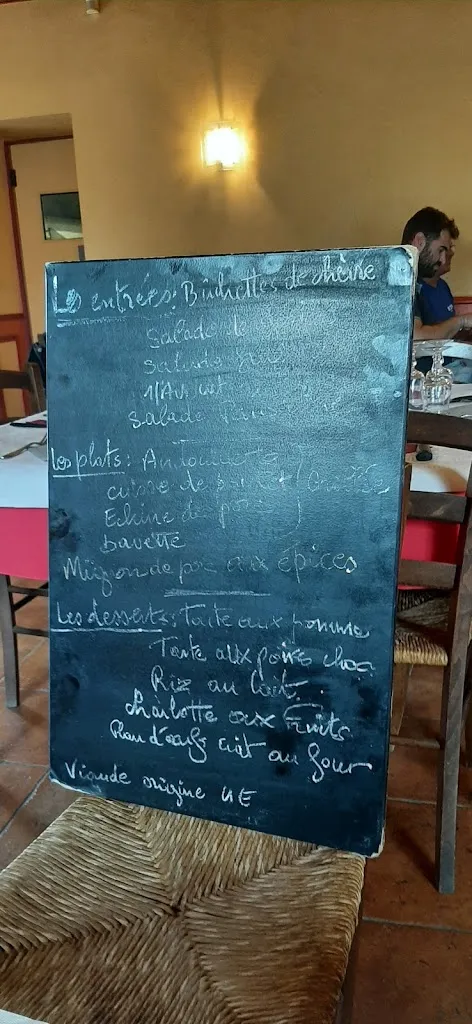 Les entrées: Bûchettes de chèvre
Salade de
Salade
Salade
Les plats:
cuisse de
Echine de porc
bavette
Mignon de porc aux épices
Les desserts: Tarte aux pommes
Tarte aux poires choc
Riz au lait
charlotte aux Fruits
Flan d'oeufs cuit au four
Viande origine UE